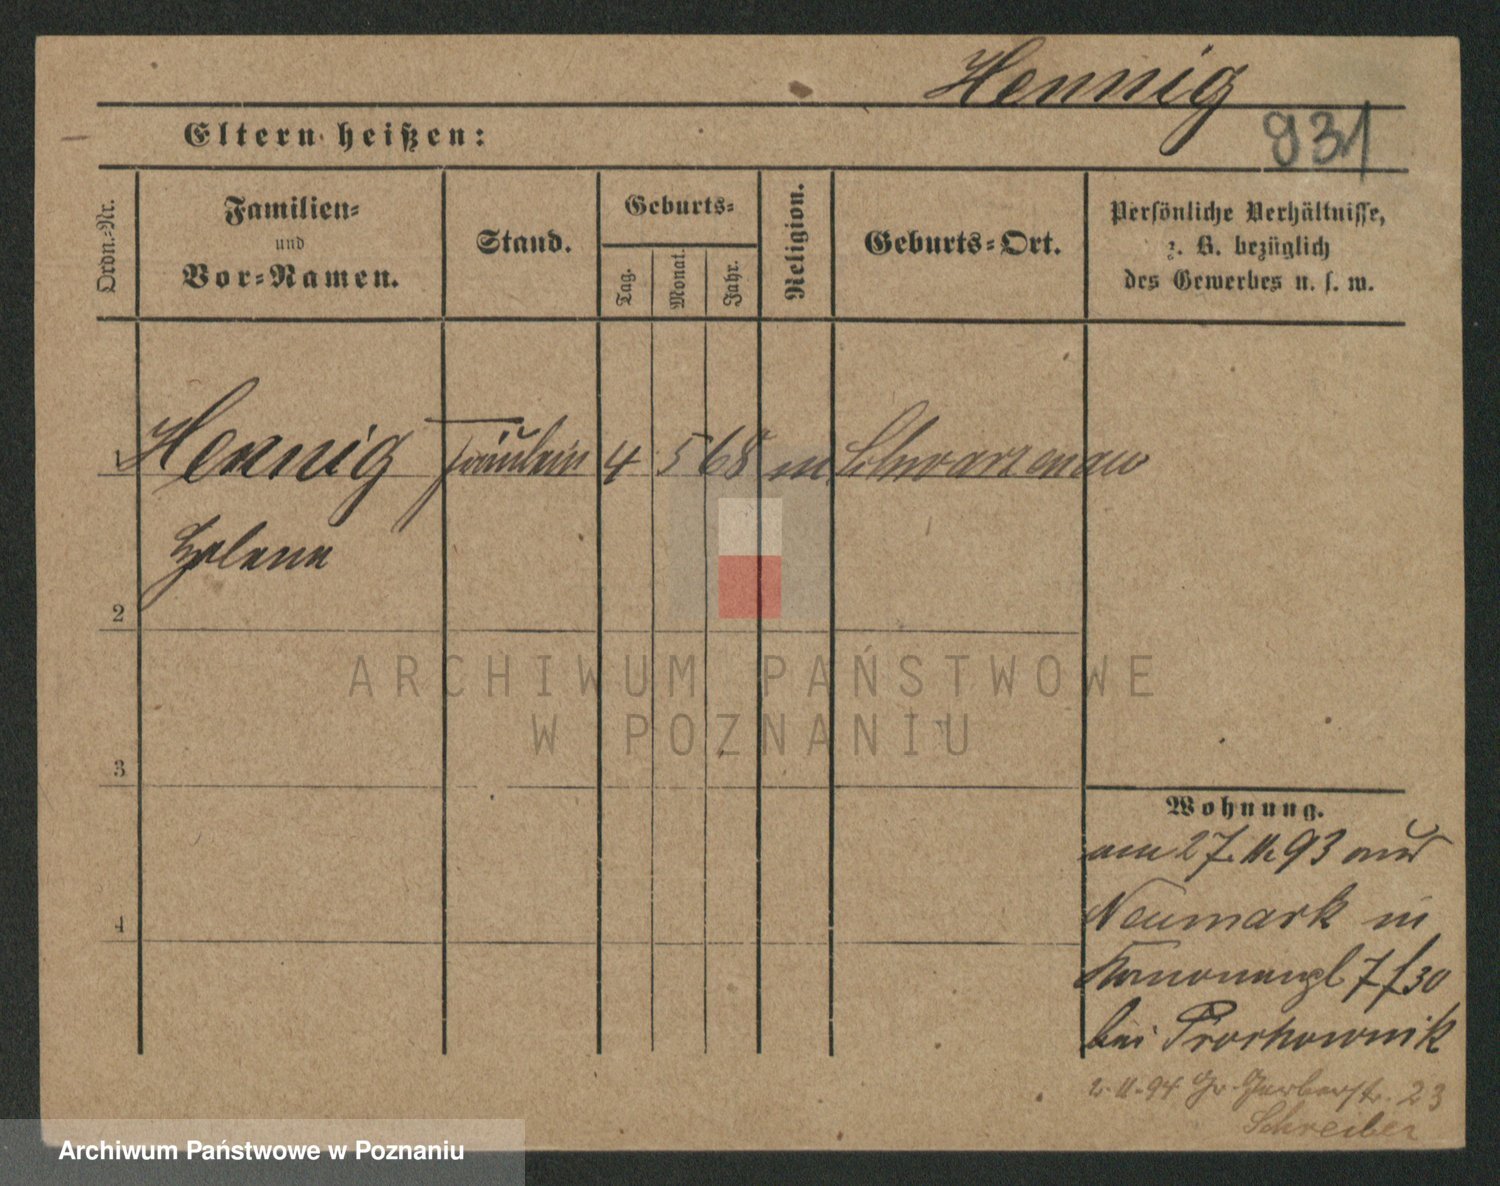 Hennig
931
Eltern heißen:
Ordn.-Nr.
Familien-
und
Vor-Namen.
Stand.
Geburts-
Tag.
Monat.
Jahr.
Religion.
Geburts-Ort.
Persönliche Verhältnisse,
z. B. bezüglich
des Gewerbes u. s. w.
1 Hennig Fräulein 4 5 68 Schwarzenau
Helene
2
3
4
ARCHIWUM PAŃSTWOWE
W POZNANIU
Wohnung.
am 27. 11. 93 aus
Neumark in
Kanonenpl 7
bei Prochownik
2. 11. 94 Gr. Gerberstr. 23
Schreiber
Archiwum Państwowe w Poznaniu